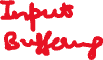 Input
Buffering